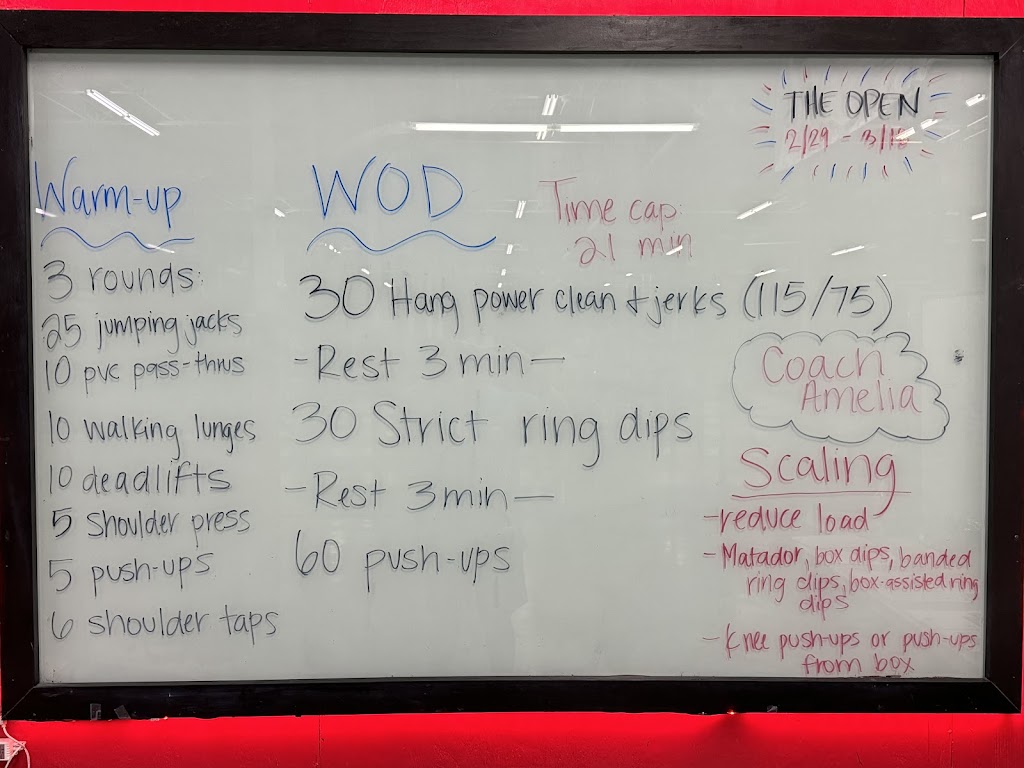 THE OPEN
2/29 - 3/18
Warm-up
3 rounds:
25 jumping jacks
10 pvc pass-thrus
10 walking lunges
10 deadlifts
5 shoulder press
5 push-ups
6 shoulder taps
WOD
Time cap:
21 min
30 Hang power clean + jerks (115/75)
-Rest 3 min-
30 Strict ring dips
-Rest 3 min-
60 push-ups
Coach
Amelia
Scaling
-reduce load
- Matador, box dips, banded
ring dips, box-assisted ring
dips
- Knee push-ups or push-ups
from box